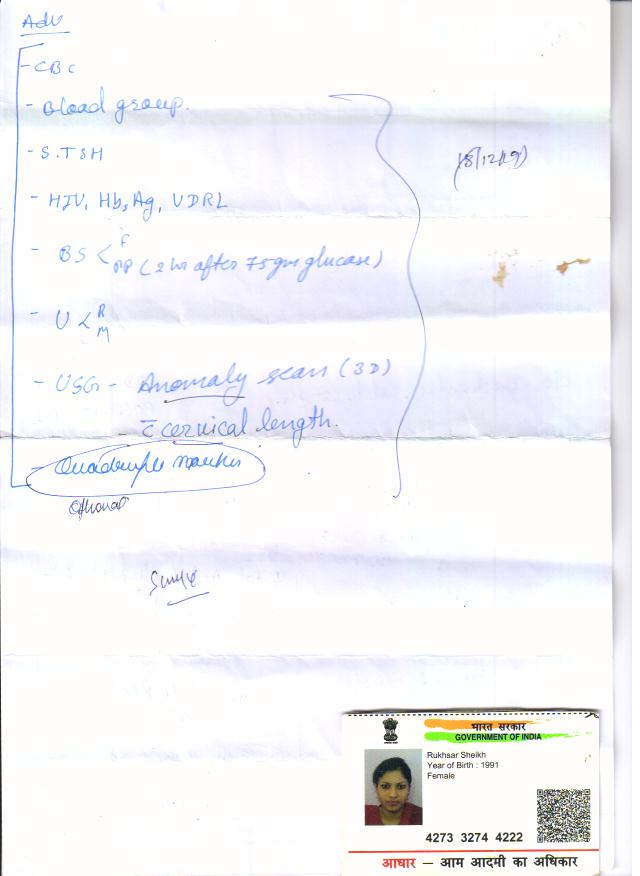 Adv
- CBC
- Blood group.
- S.TSH
(18/12/19)
- HIV, HbsAg, VDRL
- BS < F
PP (2 hr after 75 gm glucose)
- U < R
M
- USG - Anomaly scan (3D)
c̄ cervical length.
- Quadruple marker
optional
भारत सरकार
GOVERNMENT OF INDIA
Rukhsar Sheikh
Year of Birth : 1991
Female
4273 3274 4222
आधार – आम आदमी का अधिकार